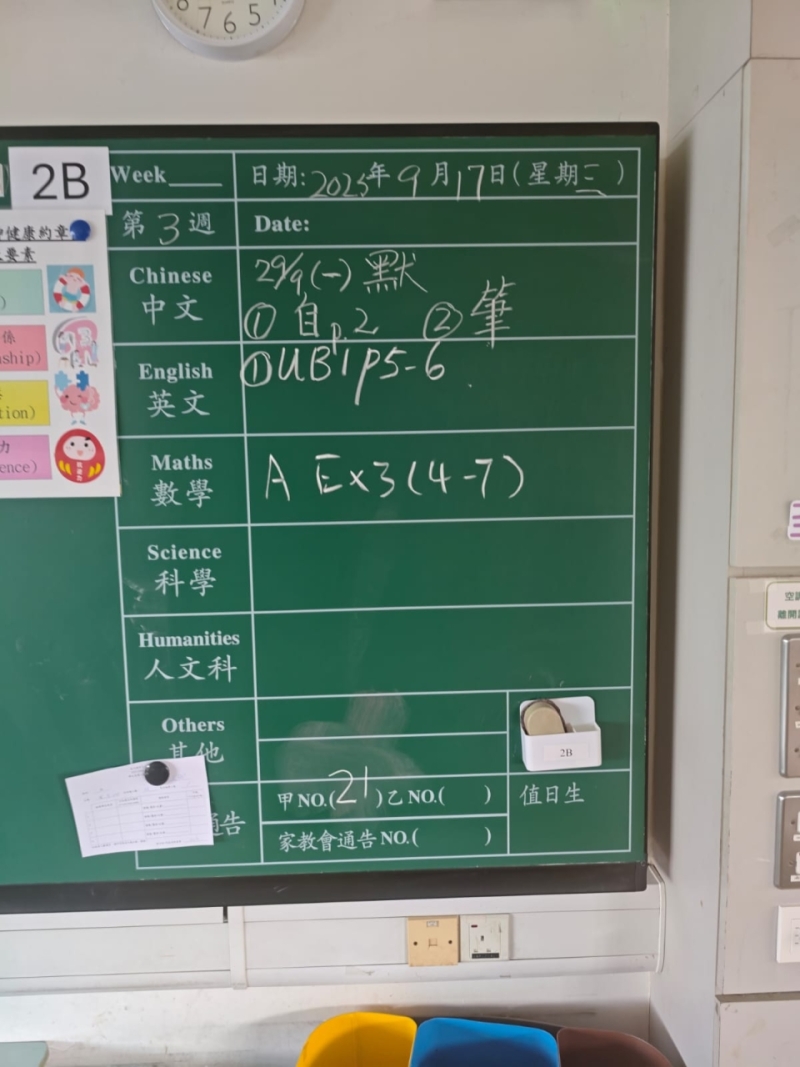 8 7 6 5
2B
Week____ 日期: 2025年9月17日(星期三)
第3週 Date:
健康約章
要素
係
nship)
tion)
力
ence)
Chinese 29/9(一)默
中文 ① 自p.2 ② 筆
English ①UB1p5-6.
英文
Maths A Ex3(4-7)
數學
Science
科學
Humanities
人文科
Others
其他
2B
通告 甲NO.(21)乙NO.( ) 值日生
家教會通告NO.( )
空調
離開